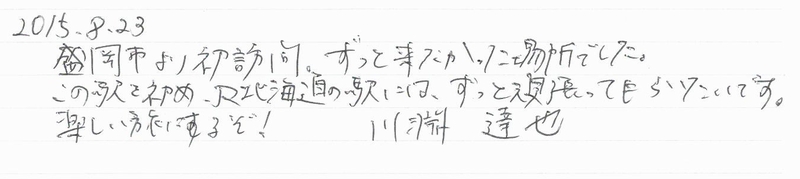 2015.8.23
盛岡市より初訪問。ずっと来たかった場所でした。
この駅を初め、JR北海道の駅には、ずっと頑張ってもらいたいです。
楽しい旅にするぞ! 川淵 達也